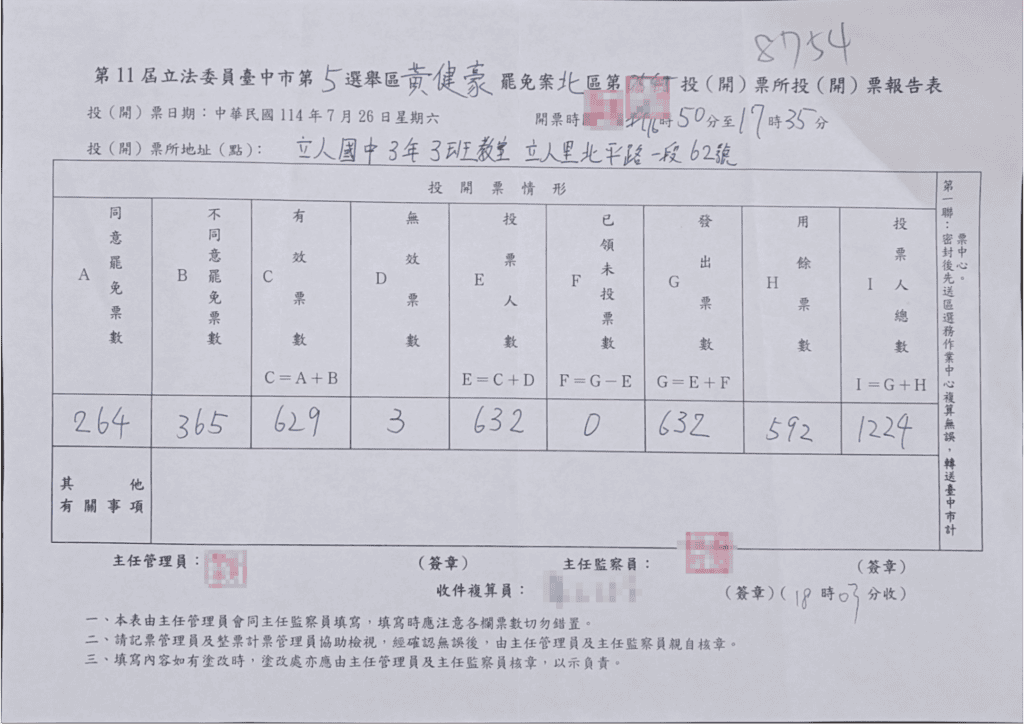 8754
第11屆立法委員臺中市第5選舉區黃健豪罷免案北區第 投(開)票所投(開)票報告表
投(開)票日期:中華民國114年7月26日星期六 開票時 16時50分至17時35分
投(開)票所地址(點): 立人國中3年3班教室 立人里北平路一段62號
投開票情形
A 同意罷免票數
B 不同意罷免票數
C 有效票數 C=A+B
D 無效票數
E 投票人數 E=C+D
F 已領未投票數 F=G-E
G 發出票數 G=E+F
H 用餘票數
I 投票人總數 I=G+H
264 365 629 3 632 0 632 592 1224
其他有關事項
第一聯:密封後先送區選務作業中心複算無誤,轉送臺中市計票中心。
主任管理員: (簽章) 主任監察員: (簽章)
收件複算員: (簽章)(18時03分收)
一、本表由主任管理員會同主任監察員填寫,填寫時應注意各欄票數切勿錯置。
二、請記票管理員及整票計票管理員協助檢視,經確認無誤後,由主任管理員及主任監察員親自核章。
三、填寫內容如有塗改時,塗改處亦應由主任管理員及主任監察員核章,以示負責。